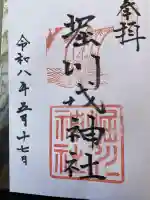 奉拝
堀川戎神社
令和八年五月十七日